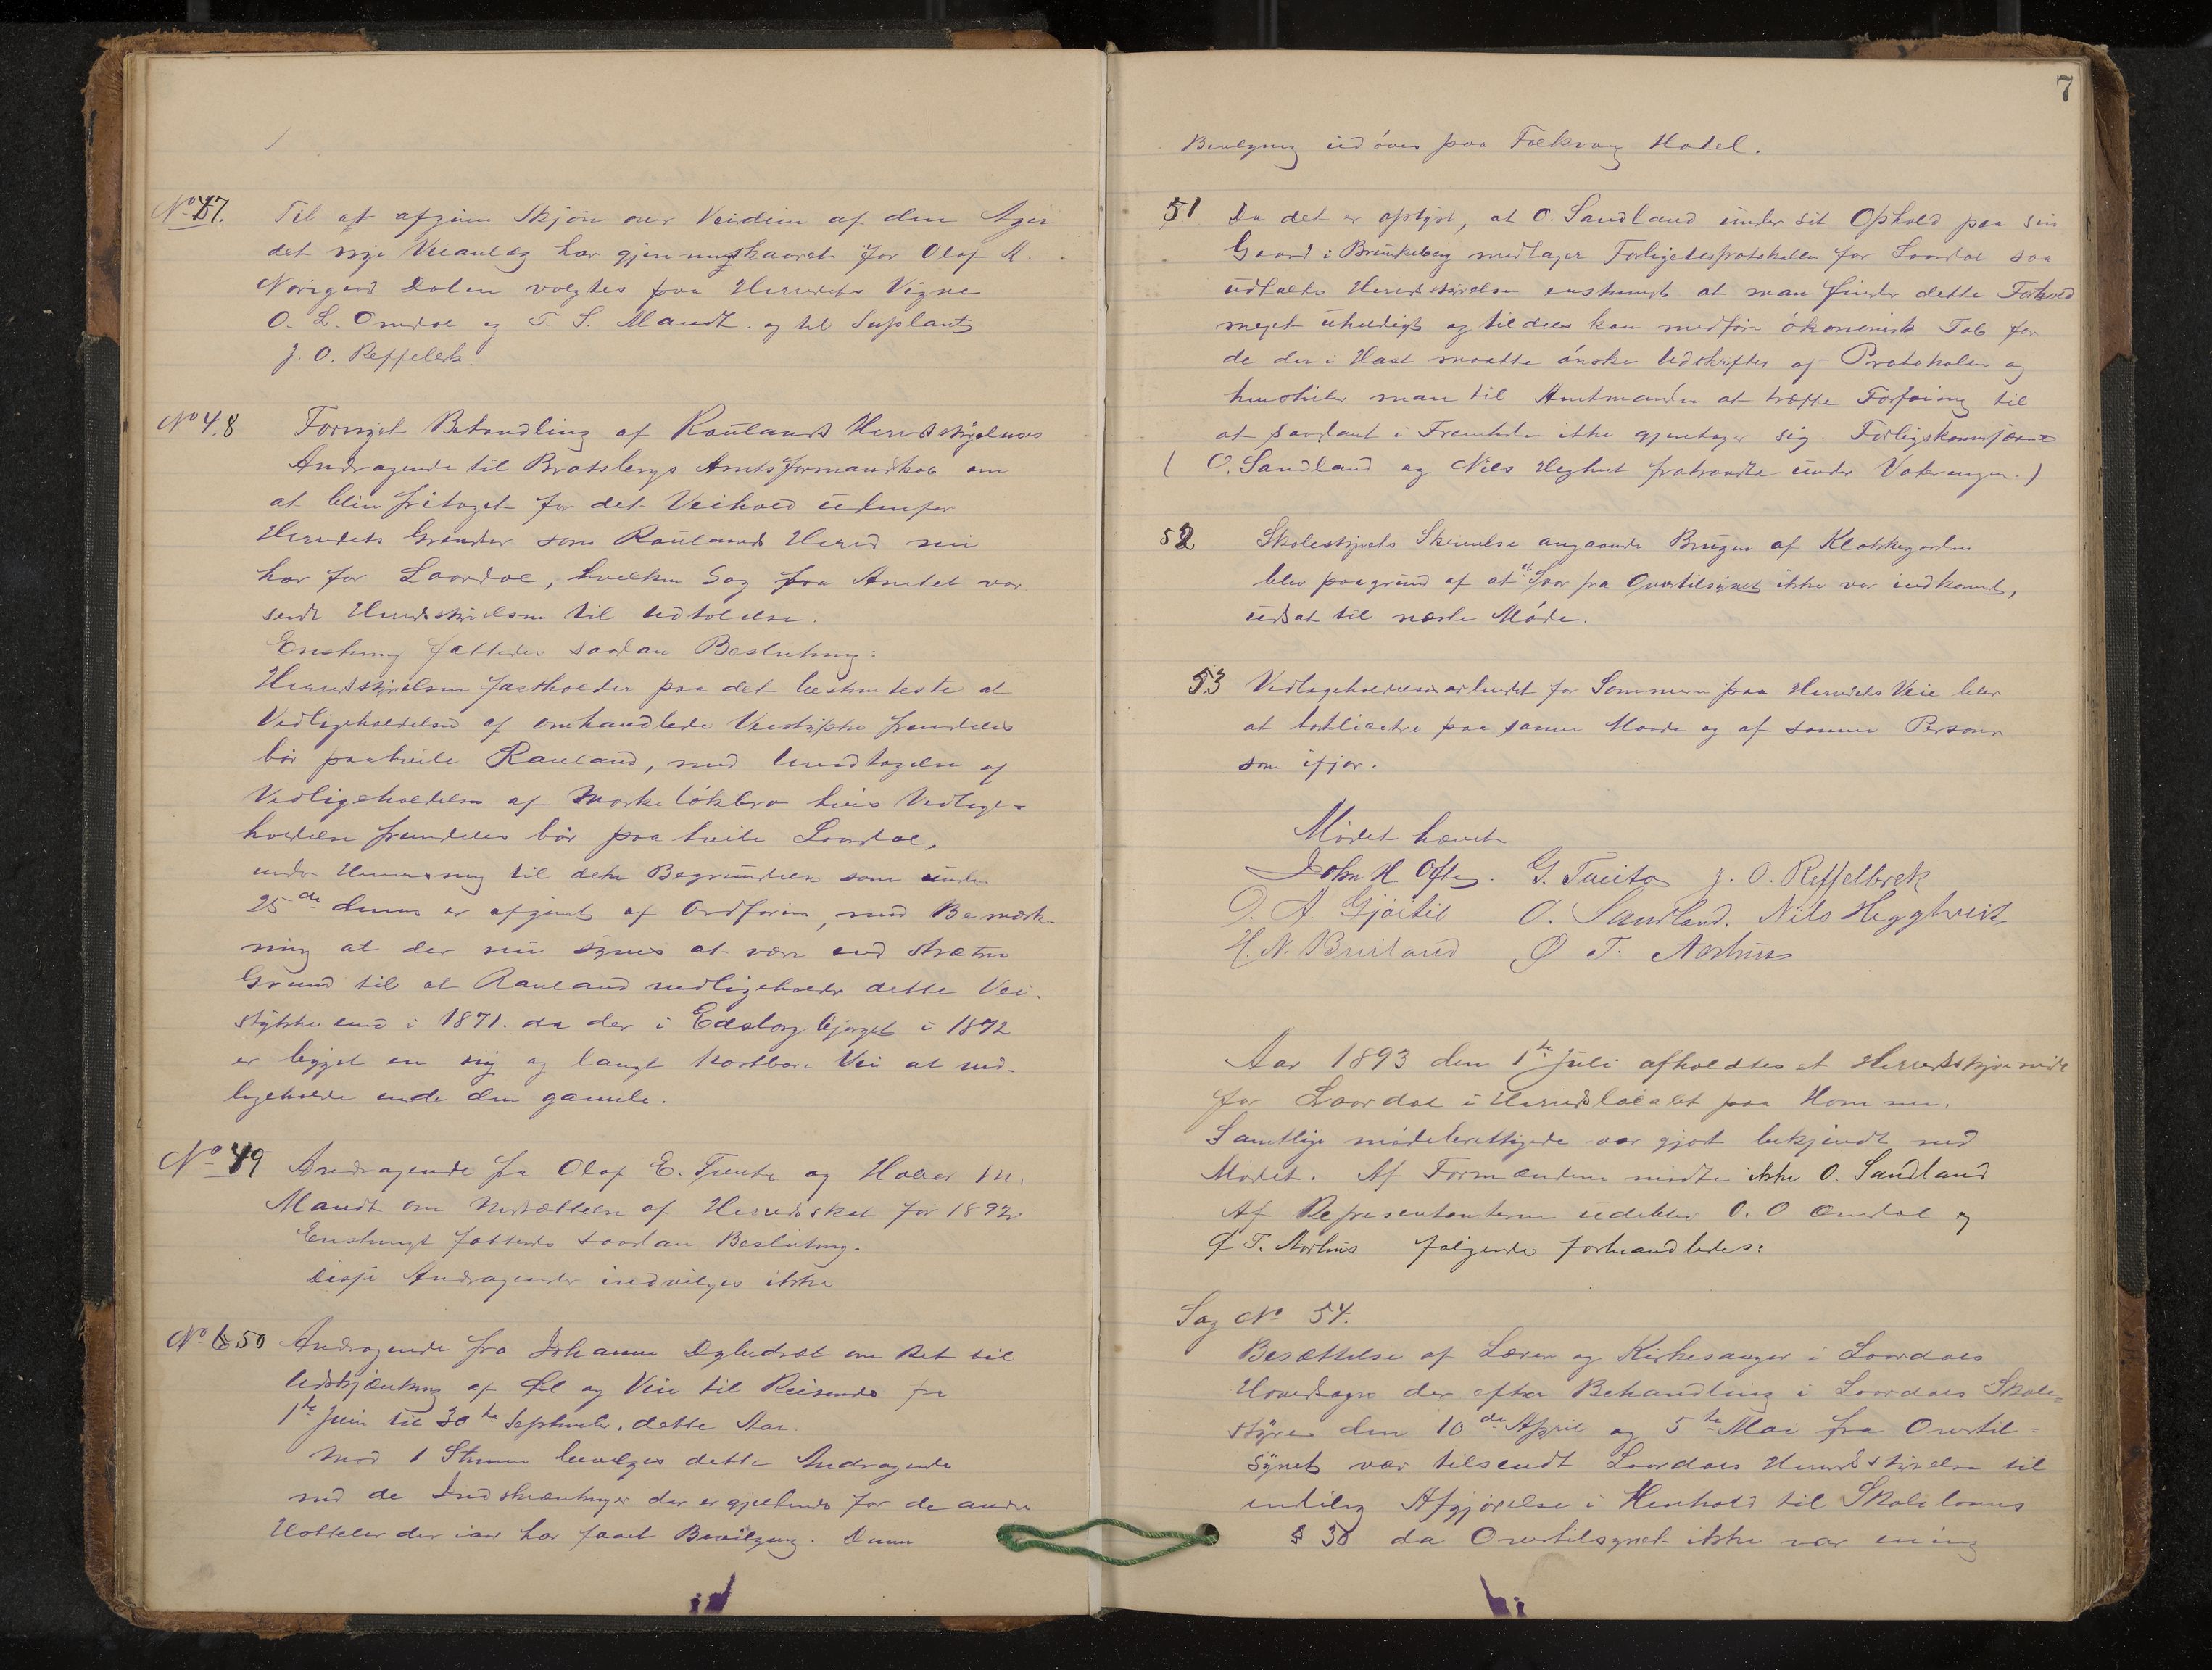 No 47. Til at afgive Skjøn over Veirdien af den Ager
det nye Veianlæg har gjennemskaaret for Olaf K.
Norigard Dalen valgtes paa Herredets Vegne
O. L. Omdal og T. S. Mandt. og til Suplant
J. O. Reffelbek.
No 48 Fornyet Behandling af Raulands Herredsstyrelses
Andragende til Bratsbergs Amtsformandskab om
at blive fritaget for det Veihold udenfor
Herredets Grændser som Raulands Herred nu
har for Laardal, hvilken Sag fra Amtet var
sendt Herredsstyrelsen til Udtalelse.
Enstemmig fattedes saadan Beslutning:
Herredsstyrelsen fastholder paa det bestemteste at
Vedligeholdelsen af omhandlede Veistykke fremdeles
bør paahvile Rauland, med Undtagelse af
Vedligeholdelsen af bro hvis Vedlige-
holdelse fremdeles bør paahvile Laardal,
under Henvisning til den Begrundelse som under
25de dennes er afgivet af Ordføren, med Bemærk-
ning at der nu synes at være end stræng
Grund til at Rauland vedligeholder dette Vei-
stykke end i 1871. da der i Edsborgbjerget i 1892
er bygget en ny og langt kostbare Vei at ved-
ligeholde ende den gamle.
No 49 Andragende fra Olaf E. Tveito og Halvor M.
Mandt om Nedsættelse af Herredsskat for 1892
Enstemigt fattedes saadan Beslutning.
Disse Andragender indvilges ikke
No 50 Andragende fra Johanne om Ret til
Udskjænkning af Øl og Vin til Reisende fra
1te Juni til 30te September. dette Aar.
Mod 1 Stemme bevilges dette Andragende
med de Indskrænkninger der er gjældende for de andre
Hotteler der iaar har faaet Bevilgning. Denne
7
Bevilgning udøves paa Folkvang Hotel.
51 Da det er oplyst, at O. Sandland under sit Ophold paa sin
Gaard i Brunkeberg medtager Forligelsesprotokollen for Laardal saa
udtalte Herredsstyrelsen enstemigt at man finder dette Forhold
meget uheldigt og tildels kan medføre økonomisk Tab for
de der i Hast maatte ønske Udskrifter af Protokolen og
henstiler man til Amtmanden at træffe Forføining til
at saadant i Fremtiden ikke gjentager sig. Forligskommissære
( O. Sandland og Nils Heghtveit fratraadte under Voteringen. )
52 Skolestyrets Skrivelse angaaende Brugen af Klokkegarden
blev paagrund af at et Svar fra Overtilsynet ikke var indkommet,
udsat til næste Møde.
53 Vedligeholdelsesarbeidet for Sommeren paa Herredets Veie blev
at bortlicitere paa samme Maade og af samme Personer
som ifjor.
Mødet hævet
John H. Ofte. G. Tveito J. O. Reffelbrek
O. A. Gjøitil O. Sandland. Nils Heggtveit
H. N. Bruland Ø T. Aarhus
Aar 1893 den 1te Juli afholdtes et Herredsstyremøde
for Laardal i Herredslocalet paa Hommen.
Samtlige mødeberettigede var gjort bekjendt med
Mødet. Af Formændene mødte ikke O. Sandland
Af Representanterne udeblev O. O Omdal og
Ø T. Aarhus følgende forhandledes:
Sag No 54.
Besættelse af Lærer og Kirkesanger i Laardals
Hovedsogn der efter Behandling i Laardals Skole=
styre den 10de April og 5te Mai fra Overtil=
synet var tilsendt Laardals Herredsstyrelse til
endelig Afgjørelse i Henhold til Skolelovens
§ 30 da Overtilsynet ikke var ening